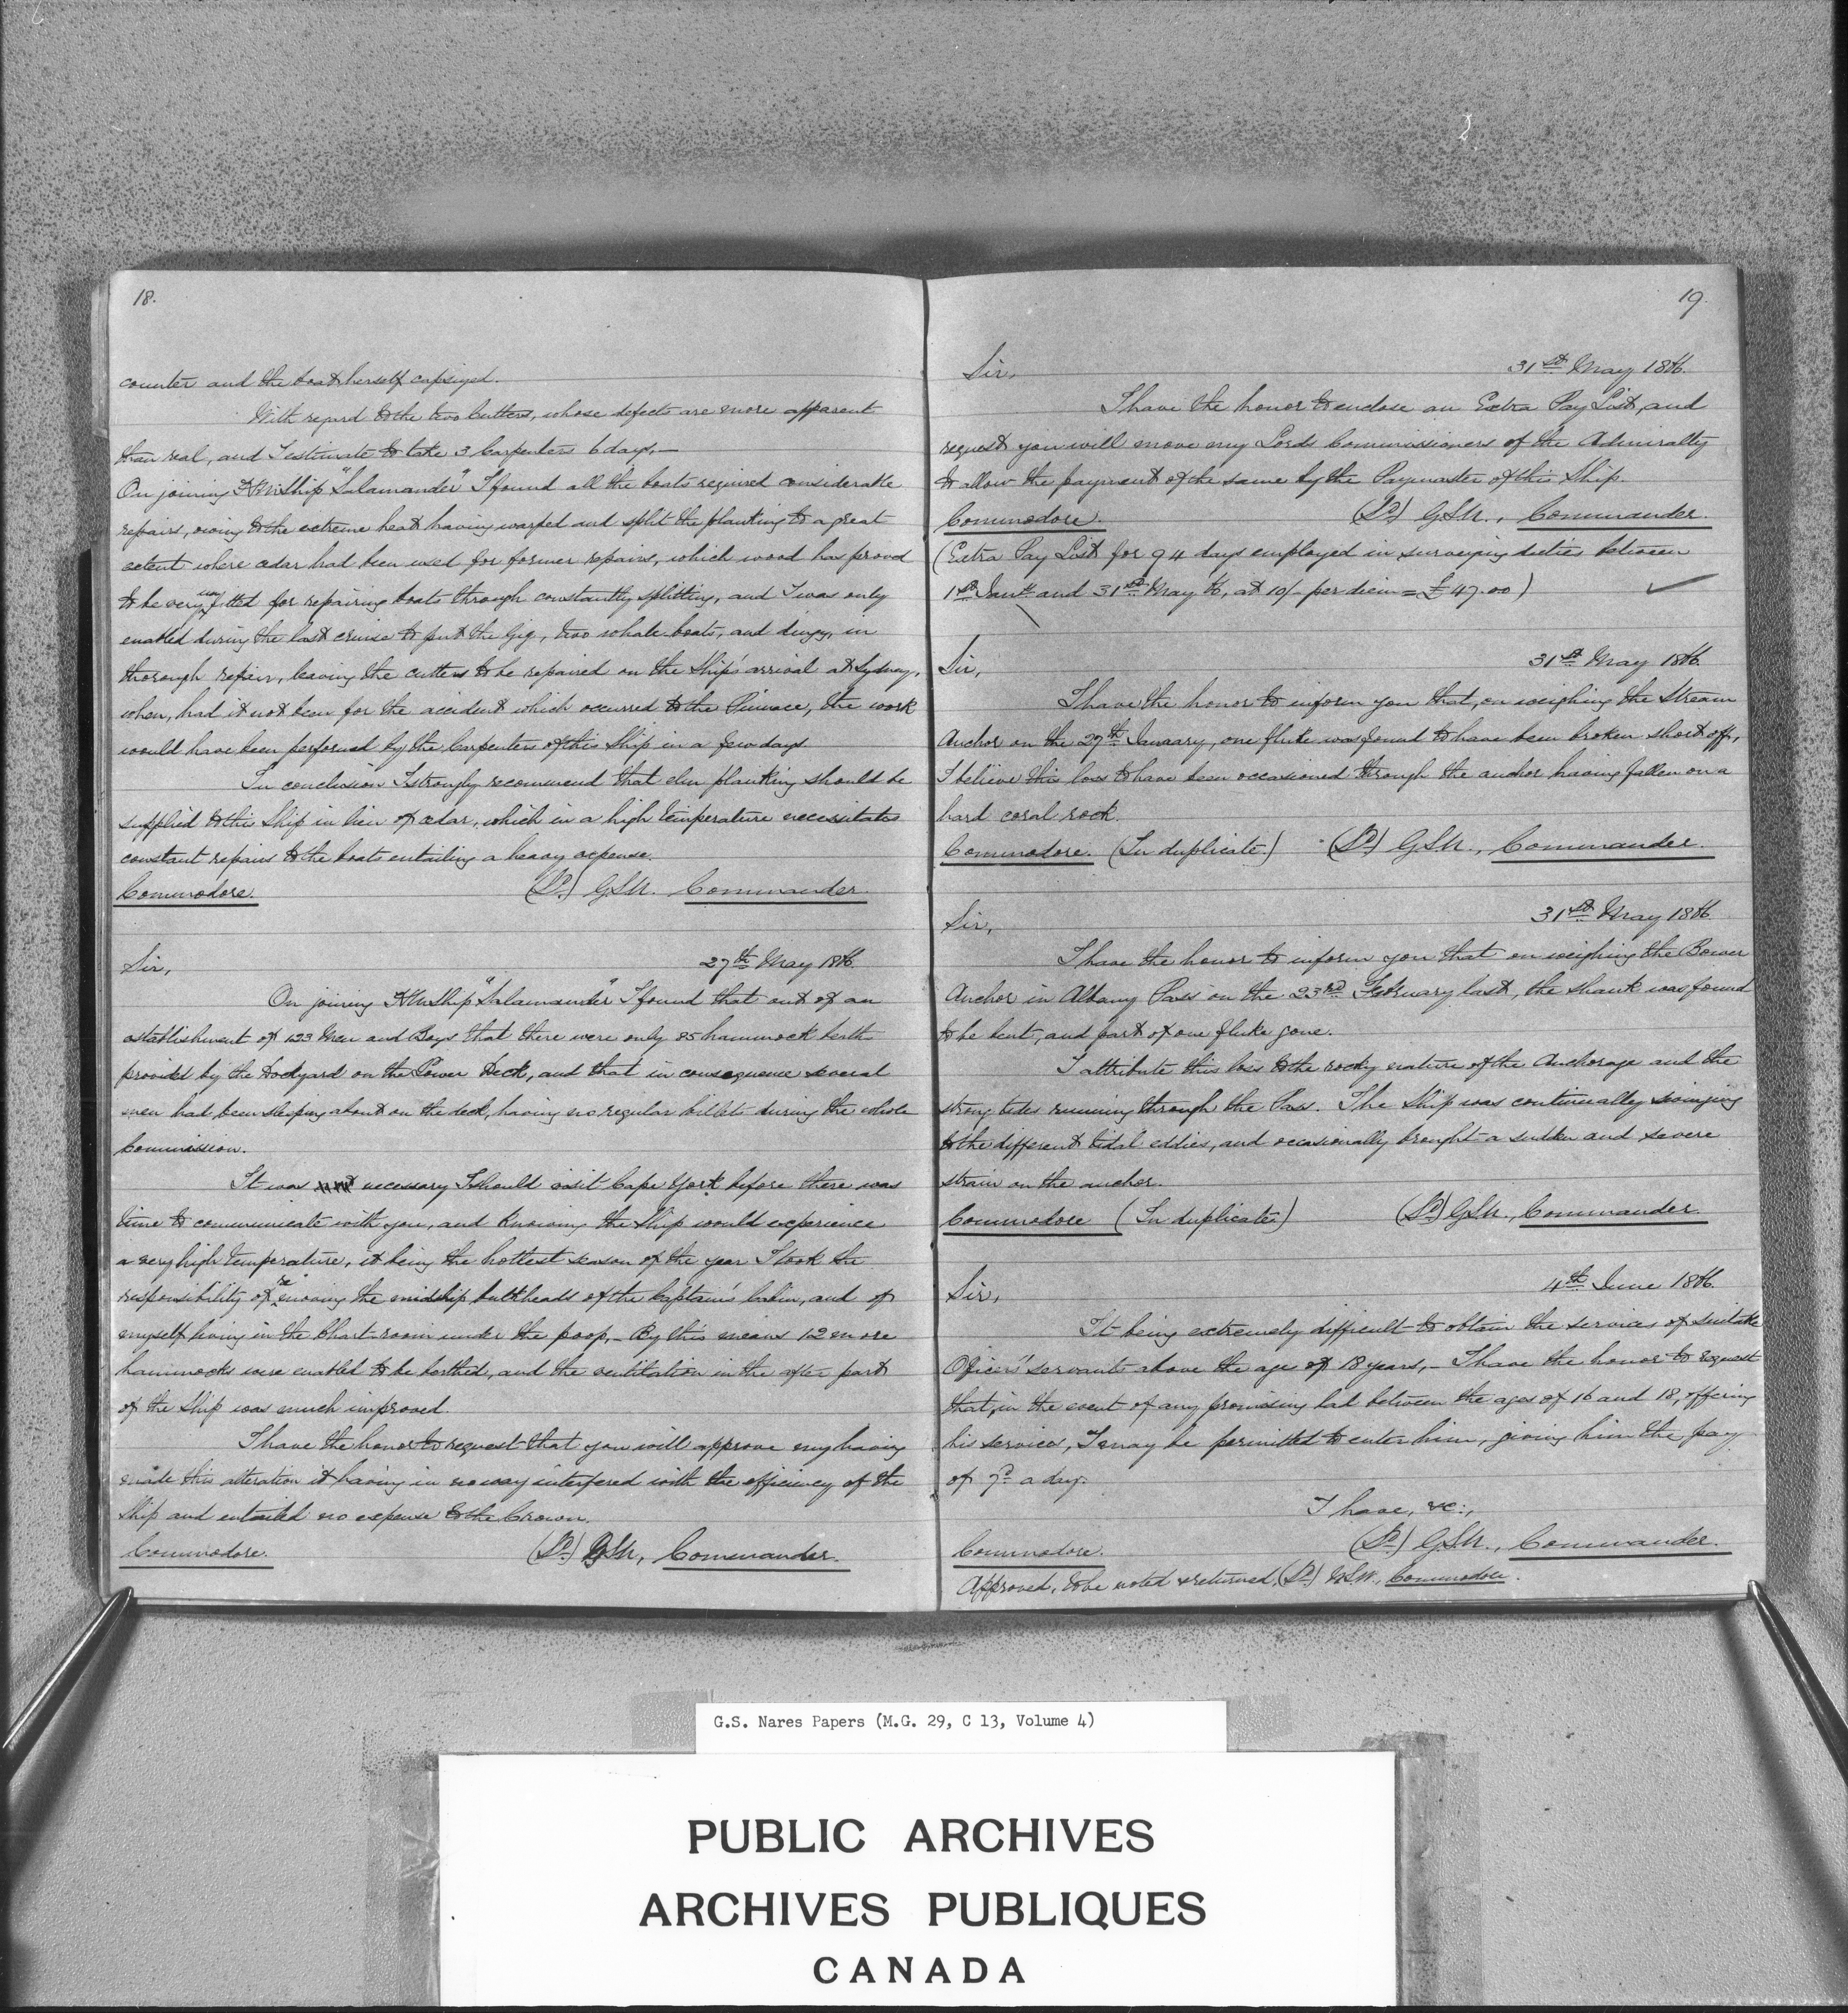 18.
counter and the boat herself capsized.
With regard to the two Cutters, whose defects are more apparent
than real, and I estimate to take 3 Carpenters 6 days,—
On joining H.M. Ship "Salamander" I found all the boats required considerable
repairs, owing to the extreme heat having warped and split the planking to a great
extent where cedar had been used for former repairs, which wood has proved
to be very unfitted for repairing boats through constantly splitting, and I was only
enabled during the last cruise to put the Gig, two whale-boats, and dingy, in
thorough repair, leaving the cutters to be repaired on the Ship's arrival at Sydney,
when, had it not been for the accident which occurred to the Pinnace, the work
would have been performed by the Carpenters of this Ship in a few days.
In conclusion I strongly recommend that elm planking should be
supplied to this Ship in lieu of cedar, which in a high temperature necessitates
constant repairs to the boats entailing a heavy expense.
Commodore. (Sd) G.S.N. Commander.
Sir, 27th May 1866.
On joining H.M. Ship "Salamander" I found that out of an
establishment of 123 Men and Boys that there were only 85 hammock berths
provided by the Dockyard on the Lower Deck, and that in consequence several
men had been sleeping about on the deck, having no regular billets during the whole
Commission.
It was necessary I should visit Cape York before there was
time to communicate with you, and knowing the Ship would experience
a very high temperature, it being the hottest season of the year I took the
responsibility of removing the midship bulkheads of the Captain's Cabin, and of
myself living in the Chart-room under the poop,— By this means 12 more
hammocks were enabled to be berthed, and the ventilation in the after part
of the Ship was much improved.
I have the honor to request that you will approve my having
made this alteration it having in no way interfered with the efficiency of the
Ship and entailed no expense to the Crown.
Commodore. (Sd) G.S.N., Commander.
19.
Sir, 31st May 1866.
I have the honor to enclose an Extra Pay List, and
request you will move my Lords Commissioners of the Admiralty
to allow the payment of the same by the Paymaster of this Ship.
Commodore. (Sd) G.S.N., Commander.
(Extra Pay List for 94 days employed in surveying duties between
1st Jan and 31st May, at 10/- per diem = £47.00)
Sir, 31st May 1866.
I have the honor to inform you that, on weighing the Stream
Anchor on the 27th January, one fluke was found to have been broken short off,
I believe this loss to have been occasioned through the anchor having fallen on a
hard coral rock.
Commodore. (In duplicate) (Sd) G.S.N., Commander.
Sir, 31st May 1866.
I have the honor to inform you that on weighing the Bower
Anchor in Albany Pass on the 23rd February last, the shank was found
to be bent, and part of one fluke gone.
I attribute this loss to the rocky nature of the Anchorage and the
strong tides running through the Pass. The Ship was continually swinging
to the different tidal eddies, and occasionally brought a sudden and severe
strain on the anchor.
Commodore (In duplicate) (Sd) G.S.N., Commander.
Sir, 4th June 1866.
It being extremely difficult to obtain the services of suitable
Officers' servants above the age of 18 years,— I have the honor to request
that, in the event of any promising lad between the ages of 16 and 18, offering
his services, I may be permitted to enter him, giving him the pay
of 7d a day.
I have, &c:,
Commodore. (Sd) G.S.N., Commander.
Approved, to be noted & returned, (Sd) Commodore.
G.S. Nares Papers (M.G. 29, C 13, Volume 4)
PUBLIC ARCHIVES
ARCHIVES PUBLIQUES
CANADA